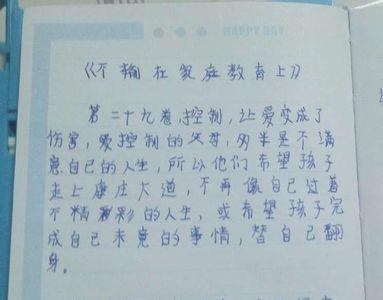 HAPPY DAY
《不输在家庭教育上》
第二十九卷,控制,让爱变成了
伤害,爱控制的父母,多半是不满
意自己的人生,所以他们希望孩子
走上康庄大道,不再像自己过着
不精彩的人生,或希望孩子完
成自己未竟的事情,替自己翻
身。